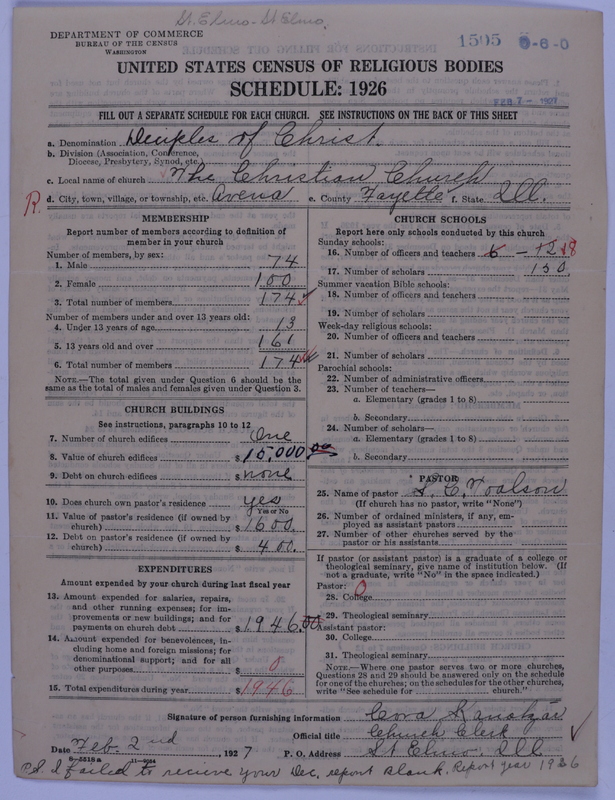 St. Elmo - St Elmo.
DEPARTMENT OF COMMERCE
BUREAU OF THE CENSUS
WASHINGTON
1595 6-6-0
UNITED STATES CENSUS OF RELIGIOUS BODIES
SCHEDULE: 1926
FEB 7 - 1927
FILL OUT A SEPARATE SCHEDULE FOR EACH CHURCH. SEE INSTRUCTIONS ON THE BACK OF THIS SHEET
a. Denomination Disciples of Christ.
b. Division (Association, Conference, Diocese, Presbytery, Synod, etc.)
c. Local name of church The Christian Church
R. d. City, town, village, or township, etc. Avena e. County Fayette f. State Ill.
MEMBERSHIP
Report number of members according to definition of member in your church
Number of members, by sex:
1. Male 74
2. Female 100
3. Total number of members 174
Number of members under and over 13 years old:
4. Under 13 years of age 13
5. 13 years old and over 161
6. Total number of members 174
NOTE.—The total given under Question 6 should be the same as the total of males and females given under Question 3.
CHURCH BUILDINGS
See instructions, paragraphs 10 to 12
7. Number of church edifices One
8. Value of church edifices $ 15,000 00
9. Debt on church edifices $ none
10. Does church own pastor's residence yes
Yes or No
11. Value of pastor's residence (if owned by church) $ 1600.
12. Debt on pastor's residence (if owned by church) $ 400.
EXPENDITURES
Amount expended by your church during last fiscal year
13. Amount expended for salaries, repairs, and other running expenses; for improvements or new buildings; and for payments on church debt $ 1946.00
14. Amount expended for benevolences, including home and foreign missions; for denominational support; and for all other purposes $ 0
15. Total expenditures during year $ 1946
CHURCH SCHOOLS
Report here only schools conducted by this church
Sunday schools:
16. Number of officers and teachers 6 - 12 18
17. Number of scholars 150
Summer vacation Bible schools:
18. Number of officers and teachers
19. Number of scholars
Week-day religious schools:
20. Number of officers and teachers
21. Number of scholars
Parochial schools:
22. Number of administrative officers
23. Number of teachers—
a. Elementary (grades 1 to 8)
b. Secondary
24. Number of scholars—
a. Elementary (grades 1 to 8)
b. Secondary
PASTOR
25. Name of pastor
(If church has no pastor, write "None")
26. Number of ordained ministers, if any, employed as assistant pastors
27. Number of other churches served by the pastor or his assistants
If pastor (or assistant pastor) is a graduate of a college or theological seminary, give name of institution below. (If not a graduate, write "No" in the space indicated.)
Pastor:
28. College 0
29. Theological seminary
Assistant pastor:
30. College
31. Theological seminary
NOTE.—Where one pastor serves two or more churches, Questions 28 and 29 should be answered only on the schedule for one of the churches; on the schedules for the other churches, write "See schedule for ____ church."
Signature of person furnishing information Cora
Official title Church Clerk
Date Feb. 2nd, 1927 P. O. Address St Elmo, Ill
P.S. I failed to recieve your Dec. report blank. Report year 1926